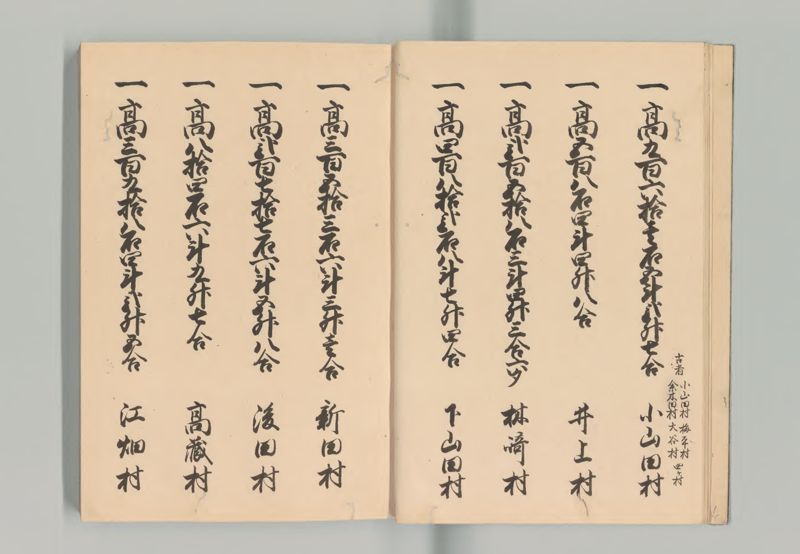 一 高九百六拾壱石五斗弐升七合 小山田村
古者 小山田村 梅平村
余木田村 大谷村 四ヶ村
一 高五百八石四斗四升八合 井上村
一 高弐百五拾八石三斗四升三合六夕 楙﨑村
一 高四百八拾弐石八斗七升四合 下山田村
一 高三百五拾三石六斗三升壱合 新田村
一 高弐百七拾七石六斗五升八合 後田村
一 高八拾四石六斗九升七合 高蔵村
一 高三百九拾八石四斗弐升五合 江畑村